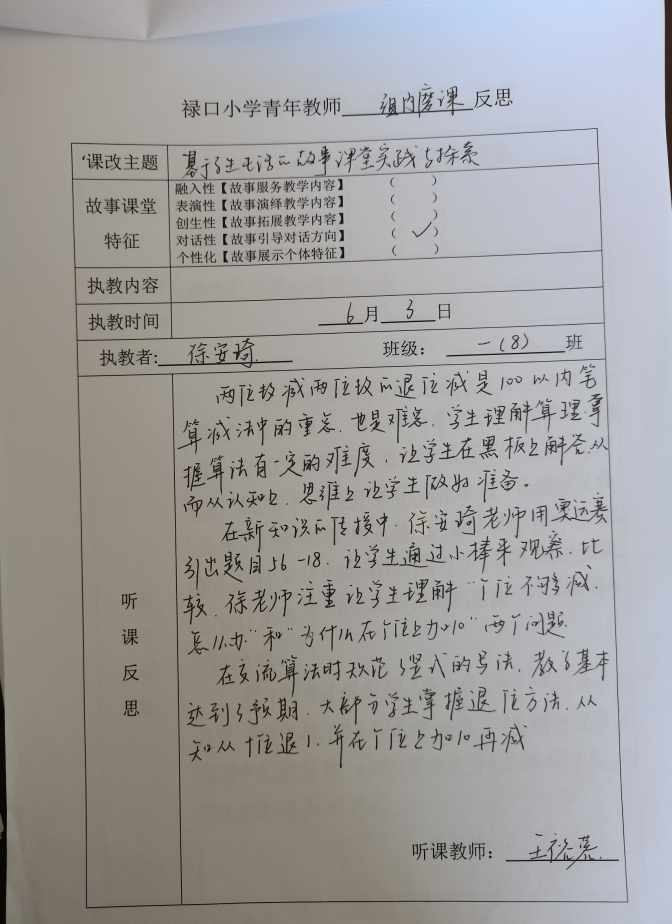 禄口小学青年教师 组内磨课 反思
课改主题 基于生活的故事课堂实践与探索
故事课堂特征
融入性【故事服务教学内容】 （ ）
表演性【故事演绎教学内容】 （ ）
创生性【故事拓展教学内容】 （ ）
对话性【故事引导对话方向】 （ ✓ ）
个性化【故事展示个体特征】 （ ）
执教内容
执教时间 6 月 3 日
执教者: 徐安琦 班级： 一（8） 班
听课反思
两位数减两位数的退位减是100以内笔
算减法中的重点，也是难点，学生理解算理，掌
握算法有一定的难度，让学生在黑板上解答，从
而从认知上，思维上让学生做好准备。
在新知识的传授中，徐安琦老师用奥运赛
引出题目56-18，让学生通过小棒来观察，比
较，徐老师注重让学生理解“个位不够减，
怎么办”和“为什么在个位上加10”两个问题
在交流算法时规范了竖式的写法，教学基本
达到了预期，大部分学生掌握退位方法，从
知从十位退1，并在个位上加10再减
听课教师：